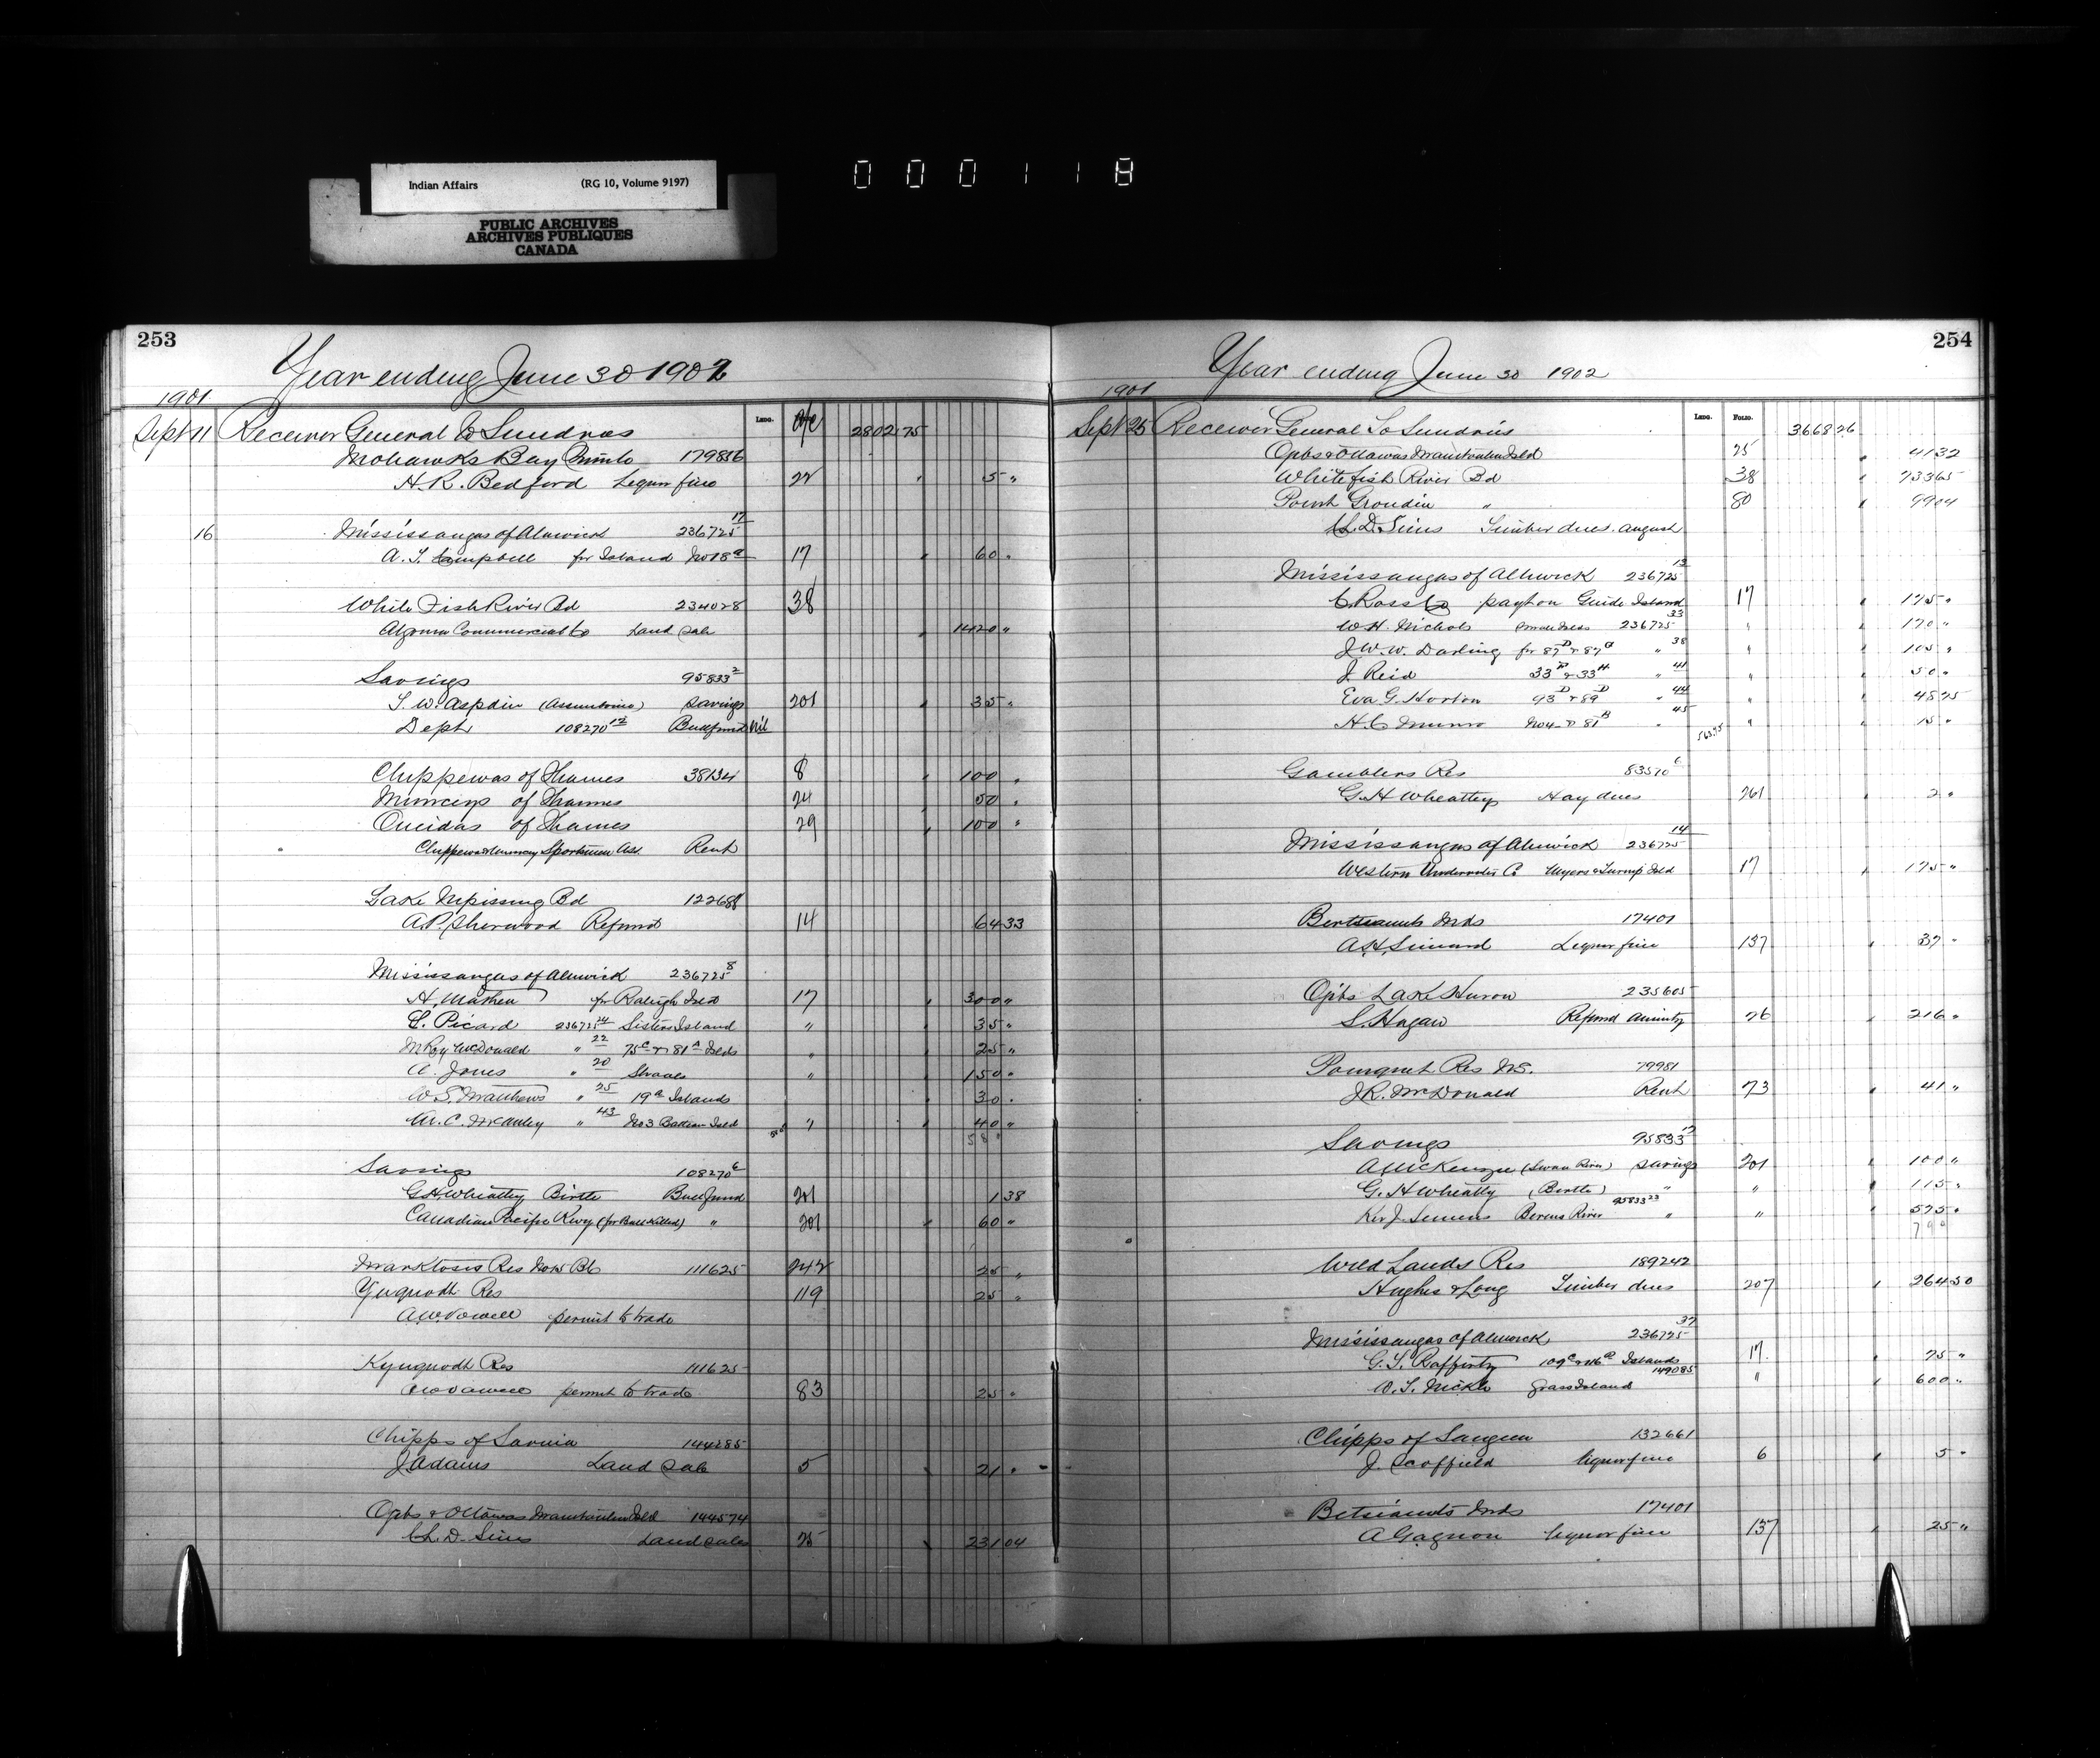 Indian Affairs (RG 10, Volume 9197)
PUBLIC ARCHIVES
ARCHIVES PUBLIQUES
CANADA
000118
253
Year ending June 30 1902
1901
Ledg. a/c
Sept 11 Receiver General to Sundries 2802 75
Mohawks Bay Quinte 179856
H. R. Bedford Liquor fine 22 5 "
16 Mississaugas of Alnwick 236725 17
A. T. Campbell for Island No 18 a 17 60 "
White Fish River Bd 234028 38
Algoma Commercial Co Land Sale 1420 "
Savings 95833 2
T. W. Aspdin (Assiniboine) Savings 201 35 "
Dept 108270 12 Bull fund Nil
Chippewas of Thames 38134 8 100 "
Munceys of Thames 24 50 "
Oneidas of Thames 29 100 "
Chippewa & Muncey Sportsmen Ass. Rent
Lake Nipissing Bd 122688
A. P. Sherwood Refund 14 64 33
Mississaugas of Alnwick 236725 8
H. for Raleigh Isld 17 300 "
E. Picard 236725 24 Sisters Island " 35 "
McDonald " 22 75 c & 81 a Islds " 25 "
A. Jones " 20 " 150 "
W. S. Matthews " 25 19 a Islands 30 "
M. C. " 43 No 3 Isld " 40 "
580
Savings 108270 6
G. H. Wheatley Birtle Bull fund 201 1 38
Canadian Pacific Rwy (for Bull Killed) " 201 60 "
Marktosis Res No 15 B.C. 111625 242 25 "
Yuquodt Res 119 25 "
A. W. Vowell permit to trade
Kyuquodt Res 111625
A W Vowell permit to trade 83 25 "
Chipps of Sarnia 144285
J Adams Land Sale 5 21 "
Ojibs & Ottawas Manitoulin Isld 144574
C. L. D. Sims Land sales 25 231 04
254
Year ending June 30 1902
1901
Ledg. Folio.
Sept 25 Receiver General To Sundries 3668 26
Ojibs & Ottawas Manitoulin Isld 25 41 32
Whitefish River Bd 38 733 65
Point Grondin " 80 99 04
C. L. D. Sims Timber dues August
Mississaugas of Alnwick 236725 13
C. Ross Co payt on Guide Island 17 175 "
W. H. Nichols 236725 33 " 170 "
J. W. W. Darling for 87 D & 87 G " 38 " 105 "
J. Reid 33 D & 33 H " 41 " 50 "
Eva G. Horton 93 D & 89 D " 44 " 48 75
H. C. Munro No 4 & 81 B " 45 " 15 "
563.75
Gamblers Res 83570 6
G. H Wheatley Hay dues 261 2 "
Mississaugas of Alnwick 236725 14
Western Underwriter Co Myers & Turnip Isld 17 175 "
Bertsiamits Inds 17401
A. H. Simard Liquor fine 137 37 "
Ojibs Lake Huron 235605
S. Hagan Refund Annuity 26 216 "
Pomquet Res N.S. 79981
J. R. McDonald Rent 73 41 "
Savings 95833 17
A McKenzie (Swan River) Savings 201 100 "
G. H Wheatly (Birtle) " " 115 "
Rev J. Semmens Berens River 95833 23 " " 575 "
790
Wild Lands Res 189242
Hughes & Long Timber dues 207 264 50
Mississaugas of Alnwick 236725 37
G. T. Rafferty 109 c & 116 a Islands 17 75 "
W. T. Nickle Grass Island 149085 " 600 "
Chipps of Saugeen 132661
J. Scoffield liquor fine 6 5 "
Betsiamits Inds 17401
A Gagnon liquor fine 137 25 "